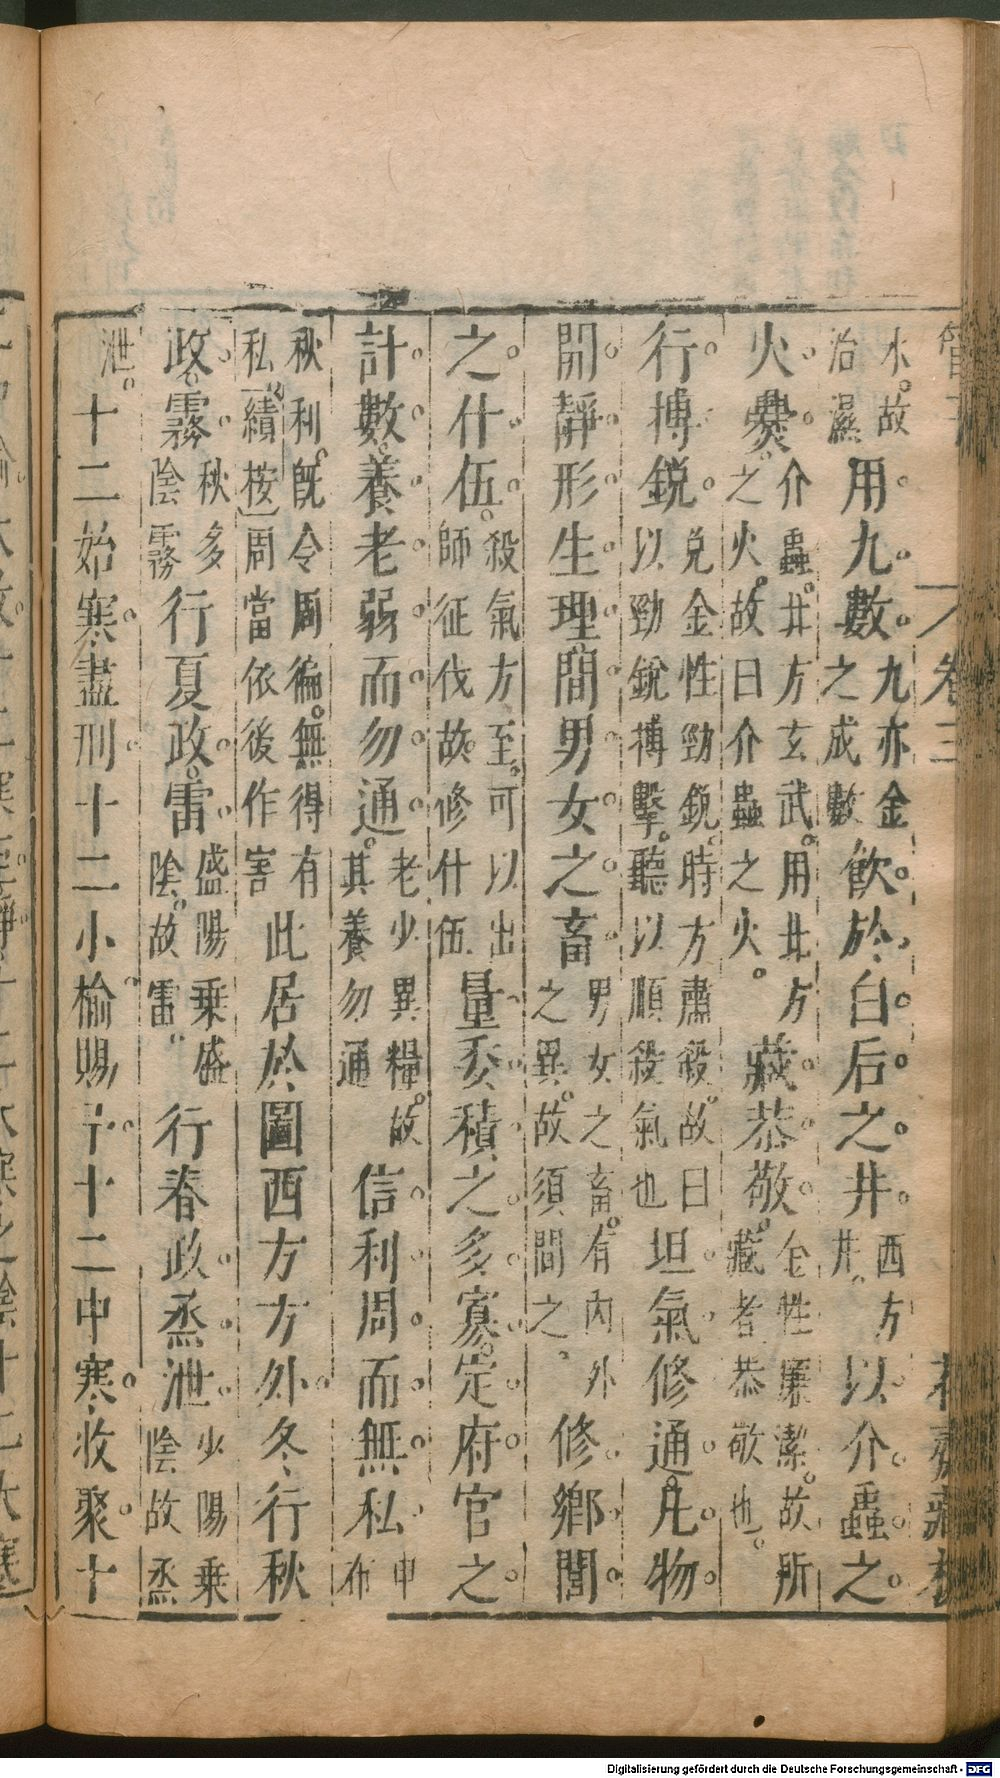 管子 卷三 花齋藏板
水。故治濕用九數。九亦金之成數飮於白后之井西方井。以介蟲之
火爨。介蟲井方玄武。用北方之火。故曰介蟲之火。藏恭敬。仝性廉潔。故所藏者恭敬也。
行搏銳。兌金性勁銳。時方肅殺。故曰以勁銳搏擊。聽以順殺氣也坦氣修通。凡物
開靜形生理。間男女之畜男女之畜。有內外之異。故須間之。修鄉閭
之什伍。殺氣方至。可以出師征伐故修什伍量委積之多寡。定府官之
計數。養老弱而勿通。老少異糧。故其養勿通信利周而無私申布
秋利。旣令周徧。無得有私〔績按〕周當依後作害此居於圖西方方外冬行秋
政。霧秋多陰霧行夏政。雷盛陽乗盛陰。故雷。行春政。烝泄少陽乗陰故烝
泄。十二始寒盡刑十二小榆賜予十二中寒收聚十
Digitalisierung gefördert durch die Deutsche Forschungsgemeinschaft - DFG